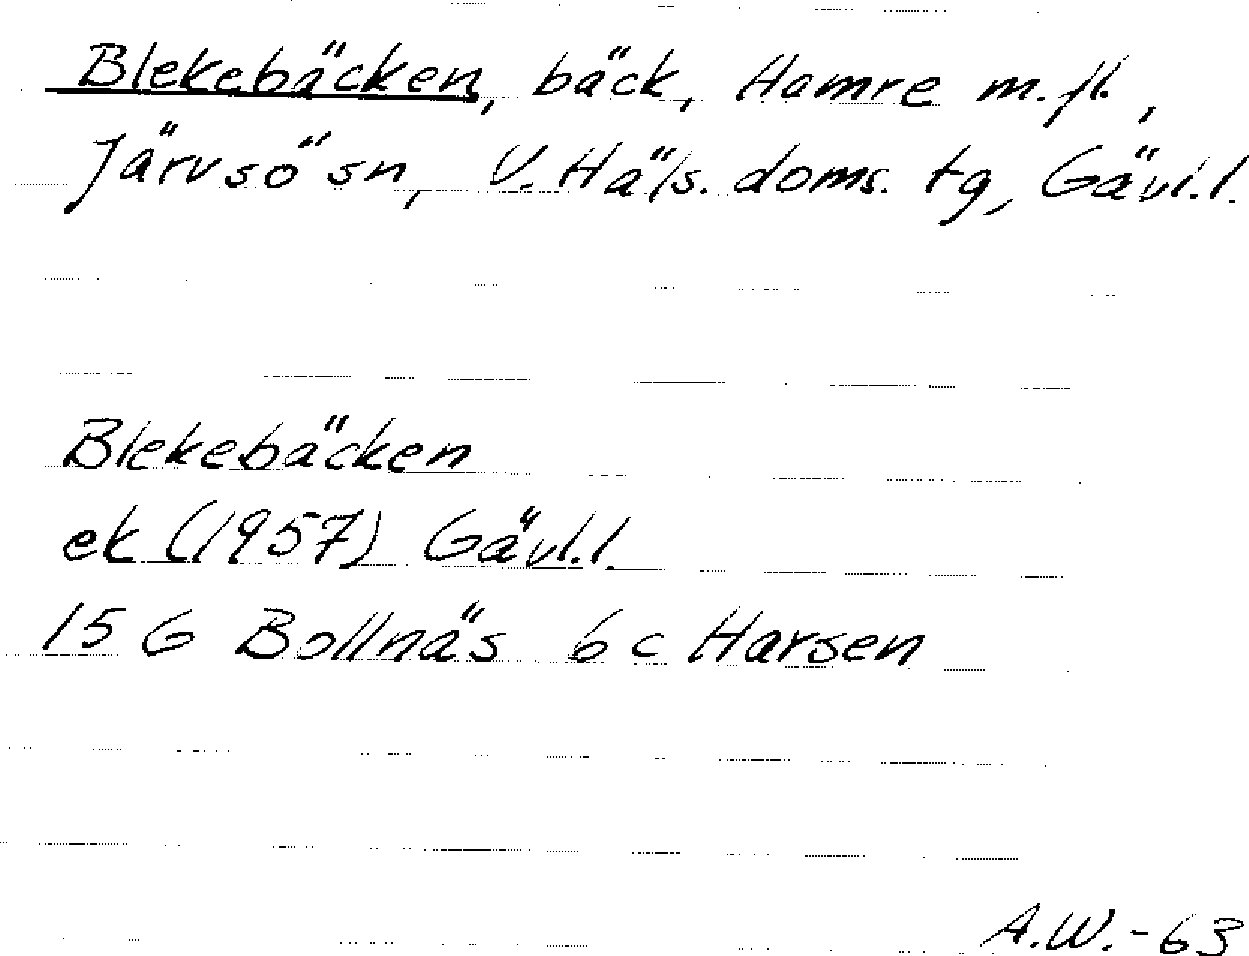 Blekebäcken, bäck, Hamre m.fl.,
Järvsö sn, V. Häls. doms. tg, Gävl.l.
Blekebäcken
ek (1957) Gävl.l.
15 G Bollnäs 6 c Harsen
A.W.-63